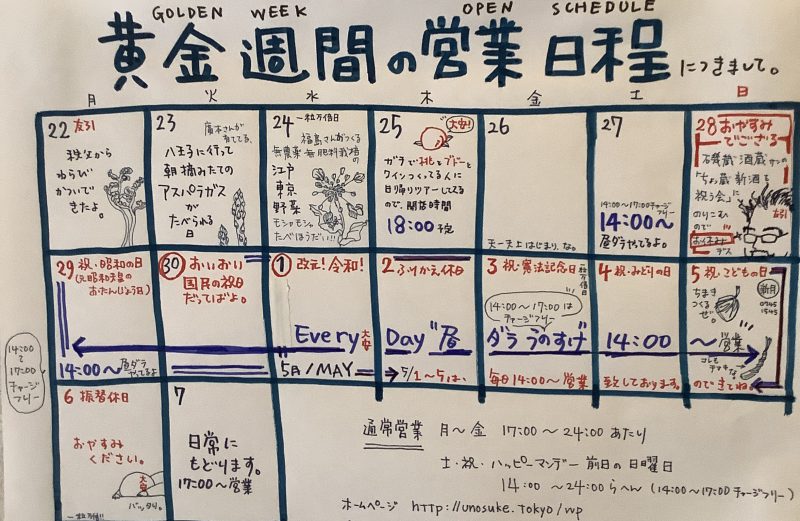 GOLDEN WEEK OPEN SCHEDULE
黄金週間の営業日程につきまして。
月 火 水 木 金 土 日
22 友引
秩父から
わらびが
とどいて
きたよ。
23
廣木さんが
育ててる
八王子に行って
朝摘みたての
アスパラガスが
たべられる
日
24 一粒万倍日
福島さんがつくる
無農薬・無肥料栽培の
江戸
東京
野菜
モシャモシャ
たべほうだい!!!
25 大安!
ガラで桃とブドーと
ワインつくってる人に
日帰りツアーしてるので、開店時間
18:00 予定
26
天一天上はじまり、な。
27
14:00〜17:00チャージフリー
14:00〜
昼ダラやてるよ。
28 おやすみ
でござる
酒蔵
「ちょ蔵新酒を
祝う会」に
のりこむ
ので
お休み
デス
友引
29 祝・昭和の日
14:00〜 昼ダラやてるよ
14:00
17:00
チャージ
フリー
30 おいおい
国民の祝日
だってばよ。
1 改元!令和!
大安
5月/MAY
2 ふりかえ休日
5/1〜5は、
3 祝・憲法記念日
一粒万倍日
14:00〜17:00は
チャージフリー
毎日14:00〜営業
4 祝・みどりの日
致しております。
5 祝・こどもの日
新月
0745
1545
ちまき
つくる
ぜ。
コレも
チマキ
な。
のできてね。
Every Day"昼ダラうのすけ 14:00 〜営業
6 振替休日
おやすみ
ください。
大安
バッタリ。
一粒万倍!!
7
日常に
もどります。
17:00〜営業
通常営業 月〜金 17:00〜24:00あたり
土・祝・ハッピーマンデー前日の日曜日
14:00 〜24:00らへん (14:00〜17:00チャージフリー)
ホームページ http://unosuke.tokyo/wp